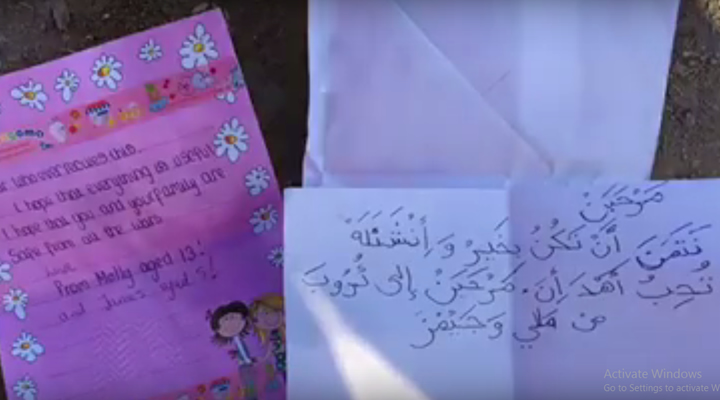 whoever recives this.
I hope that everything is
I hope that you and your family are
safe from all the wars
love
From Molly aged 13!
and James aged 5!
مَرْحَبَنْ
نَتَمَنَ أَنَّ تَكُنُ بِخَيرُ وَ
تُحِبُ أَهْدَ أِنَ. مَرْحَبَنْ إِلى
مِن مَلي وَجَيمْز
Activate Windows
Go to Settings to activate W